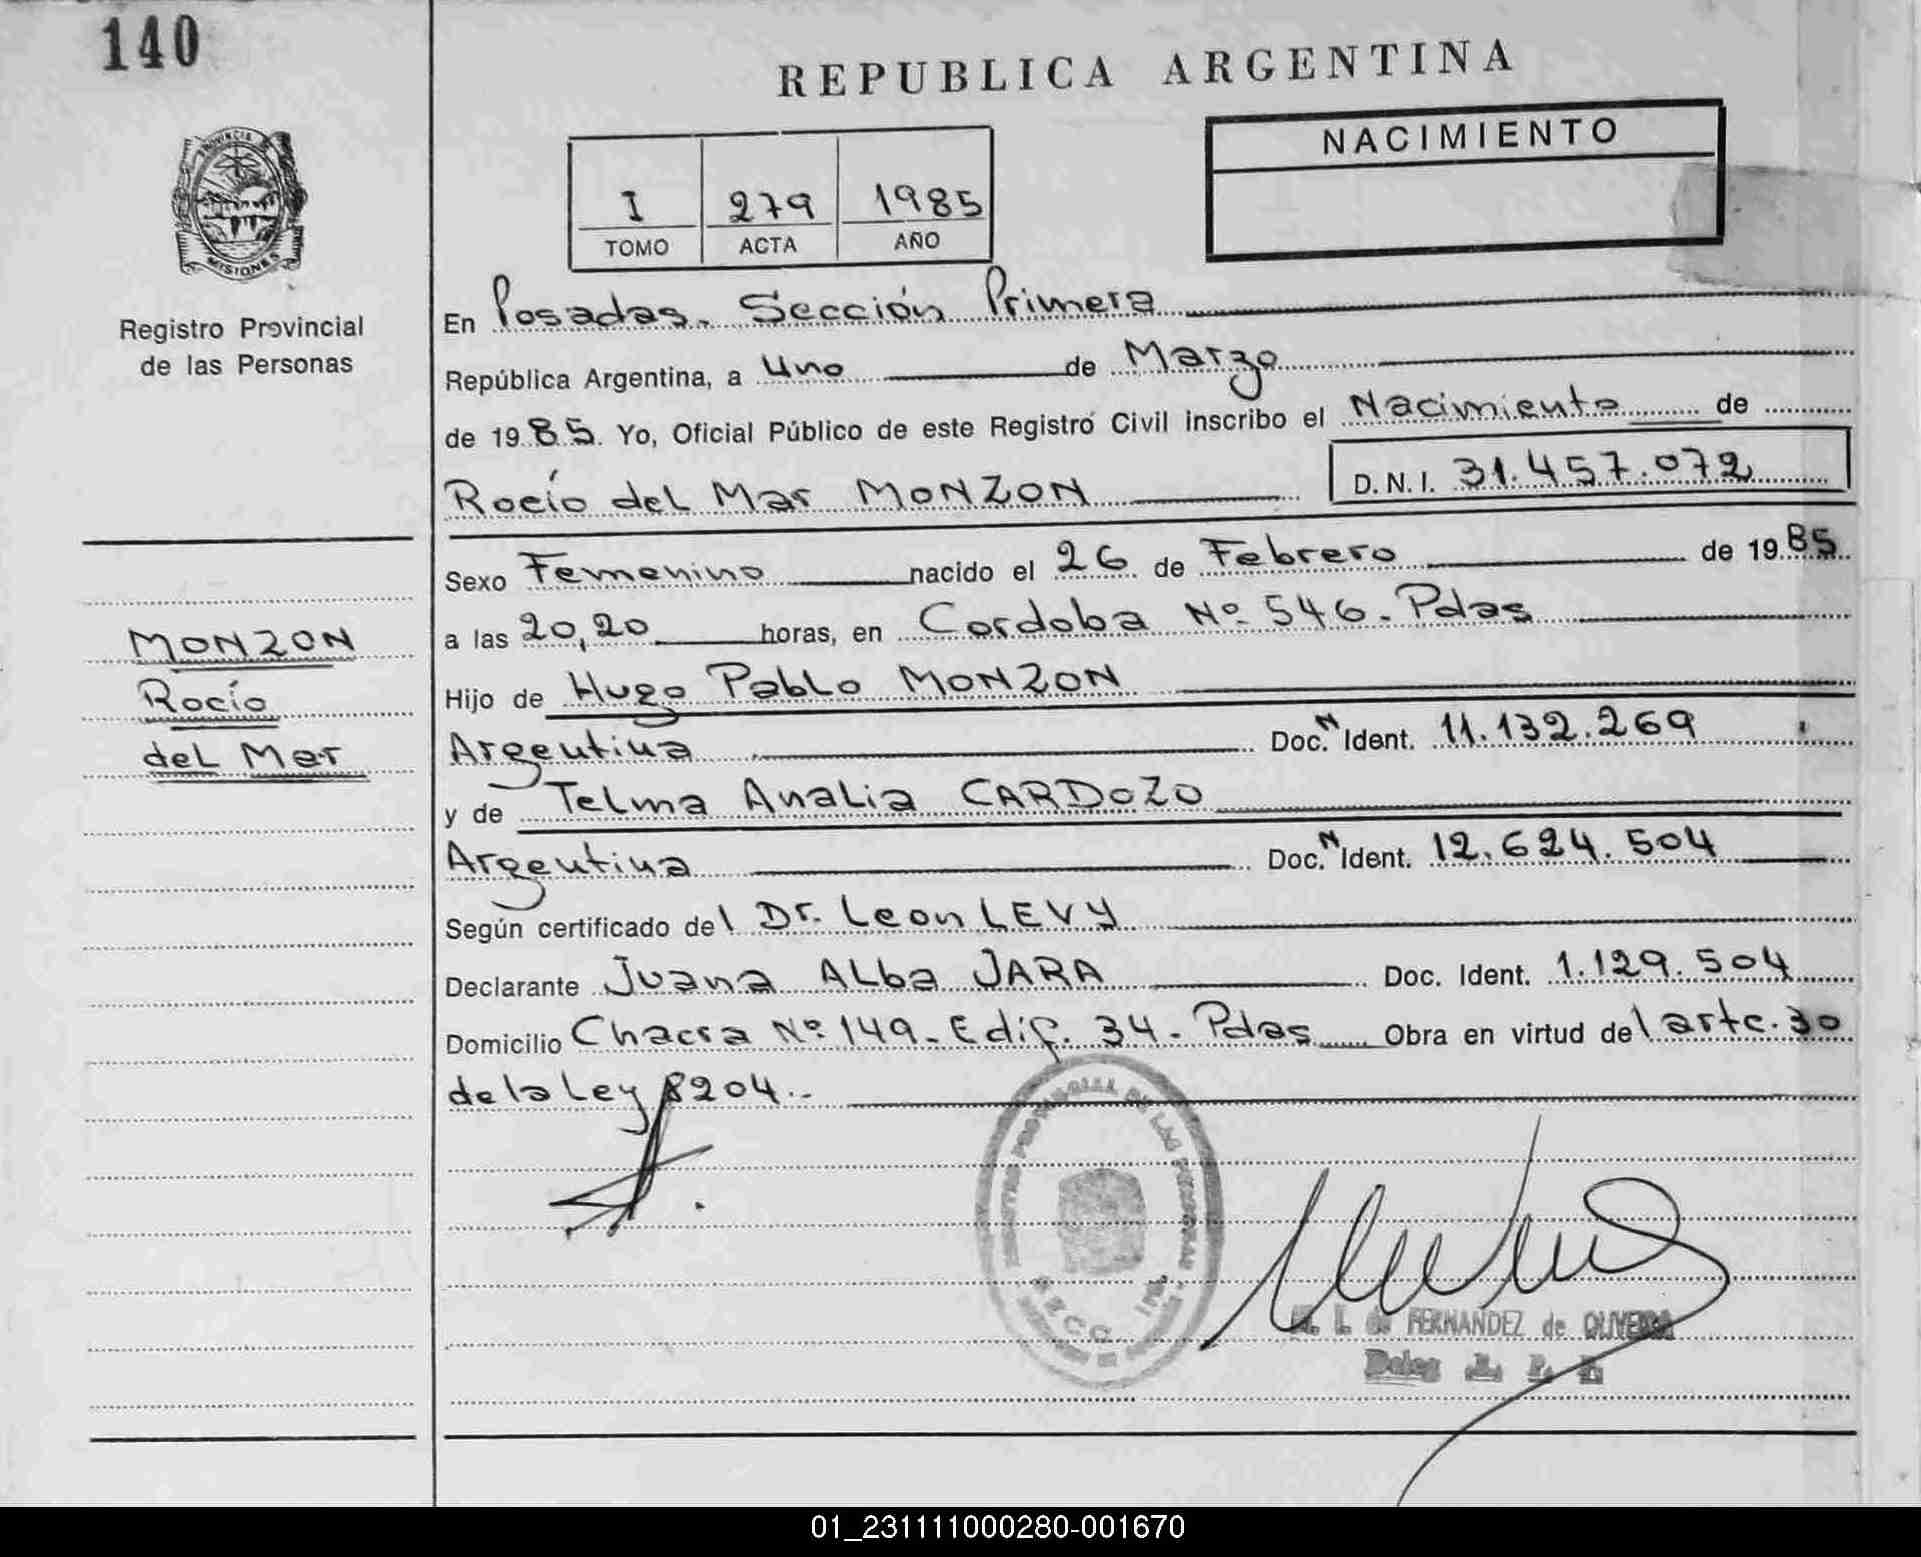 140
REPUBLICA ARGENTINA
NACIMIENTO
PROVINCIA
MISIONES
I 279 1985
TOMO ACTA AÑO
Registro Provincial
de las Personas
En Posadas. Sección Primera
República Argentina, a Uno de Marzo
de 1985. Yo, Oficial Público de este Registro Civil inscribo el Nacimiento de
Rocío del Mar MONZON D.N.I. 31.457.072
Sexo Femenino nacido el 26 de Febrero de 1985
a las 20,20 horas, en Cordoba Nº 546. Pdas
Hijo de Hugo Pablo MONZON
Argentina Doc. N Ident. 11.132.269
y de Telma Analia CARDOZO
Argentina Doc. N Ident. 12.624.504
Según certificado del Dr. Leon LEVY
Declarante Juana Alba JARA Doc. Ident. 1.129.504
Domicilio Chacra Nº 149 - Edif. 34 - Pdas Obra en virtud del artc. 30
de la Ley 8204.-
MONZON
Rocío
del Mar
PROVINCIAL DE LAS PERSONAS
FERNANDEZ de OLIVEIRA
Deleg
01_231111000280-001670